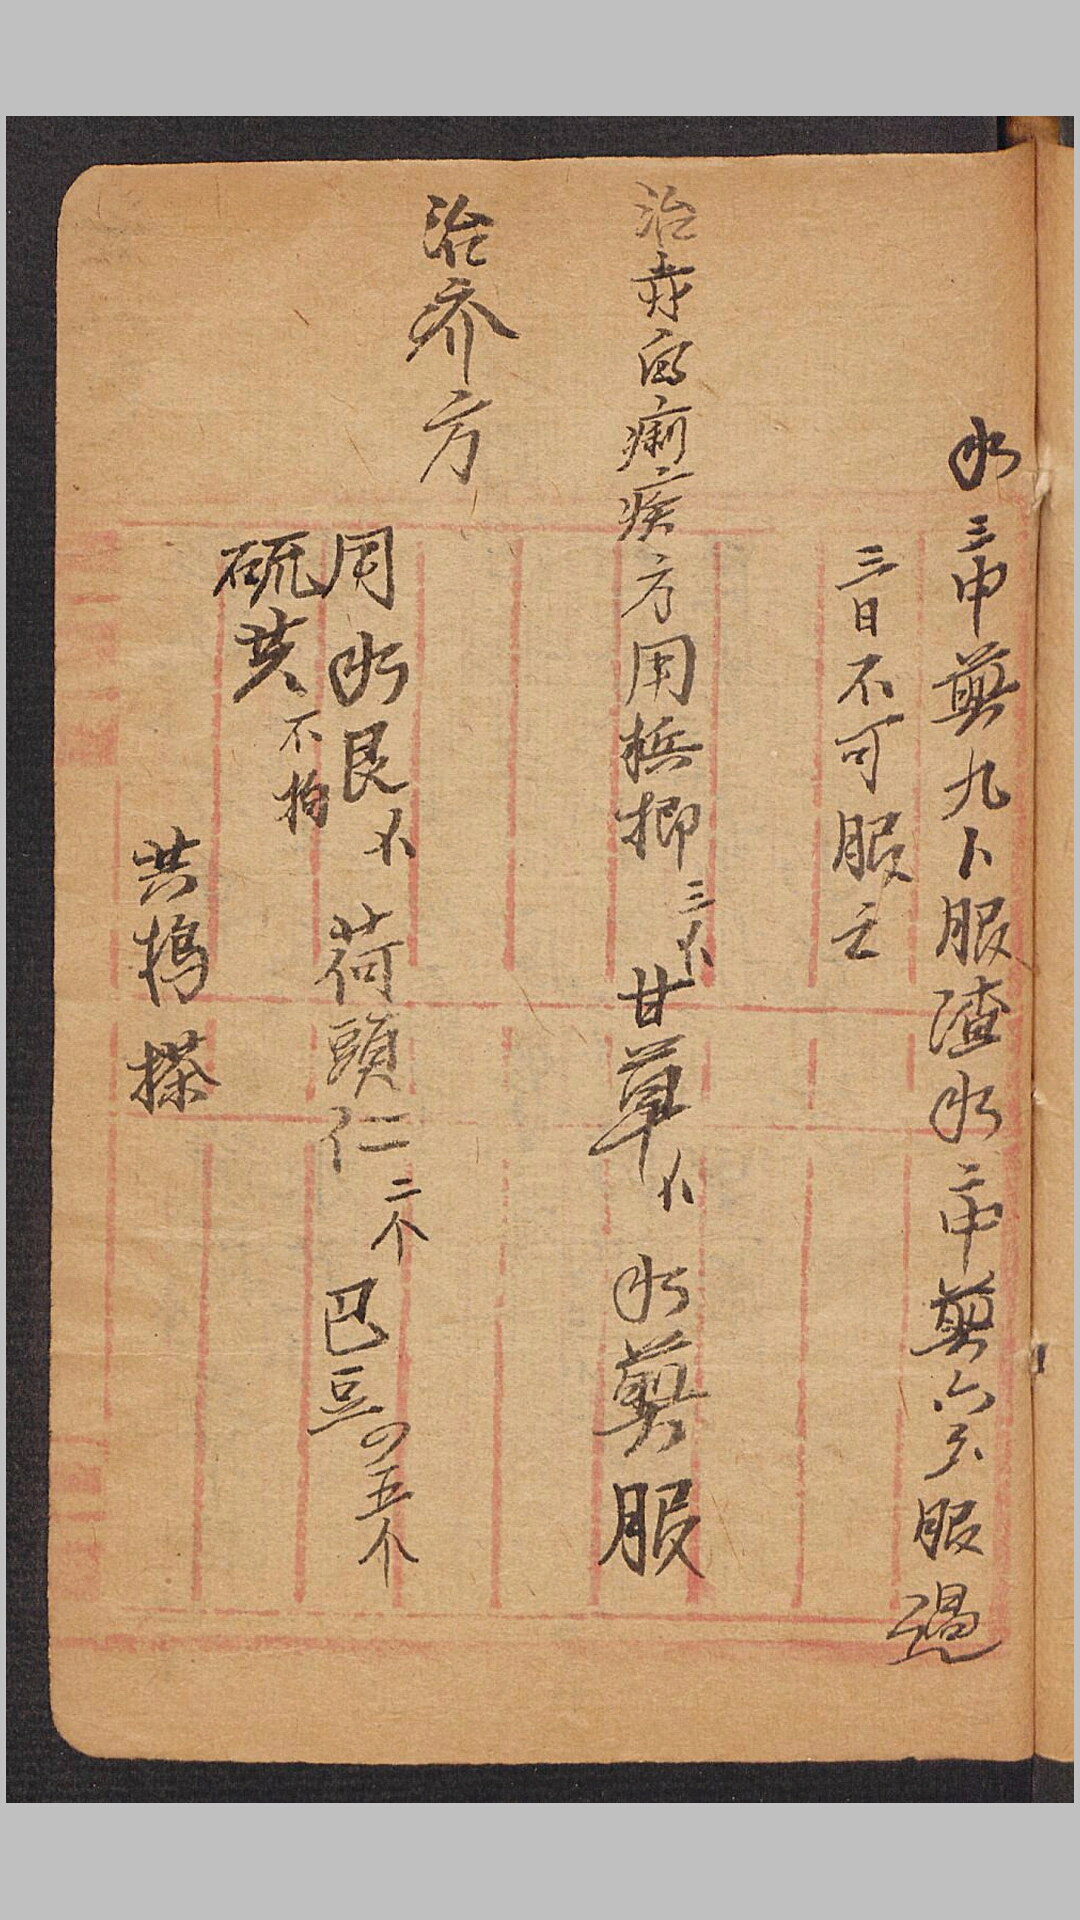 水三中煎九卜服渣水二中煎六分服過
三日不可服云
治赤白痢疾方用梹榔三不甘草不 水煎服
治疥方
同水艮不 荷頭仁二个 巴豆四五个
硫黄不拘
共搗搽